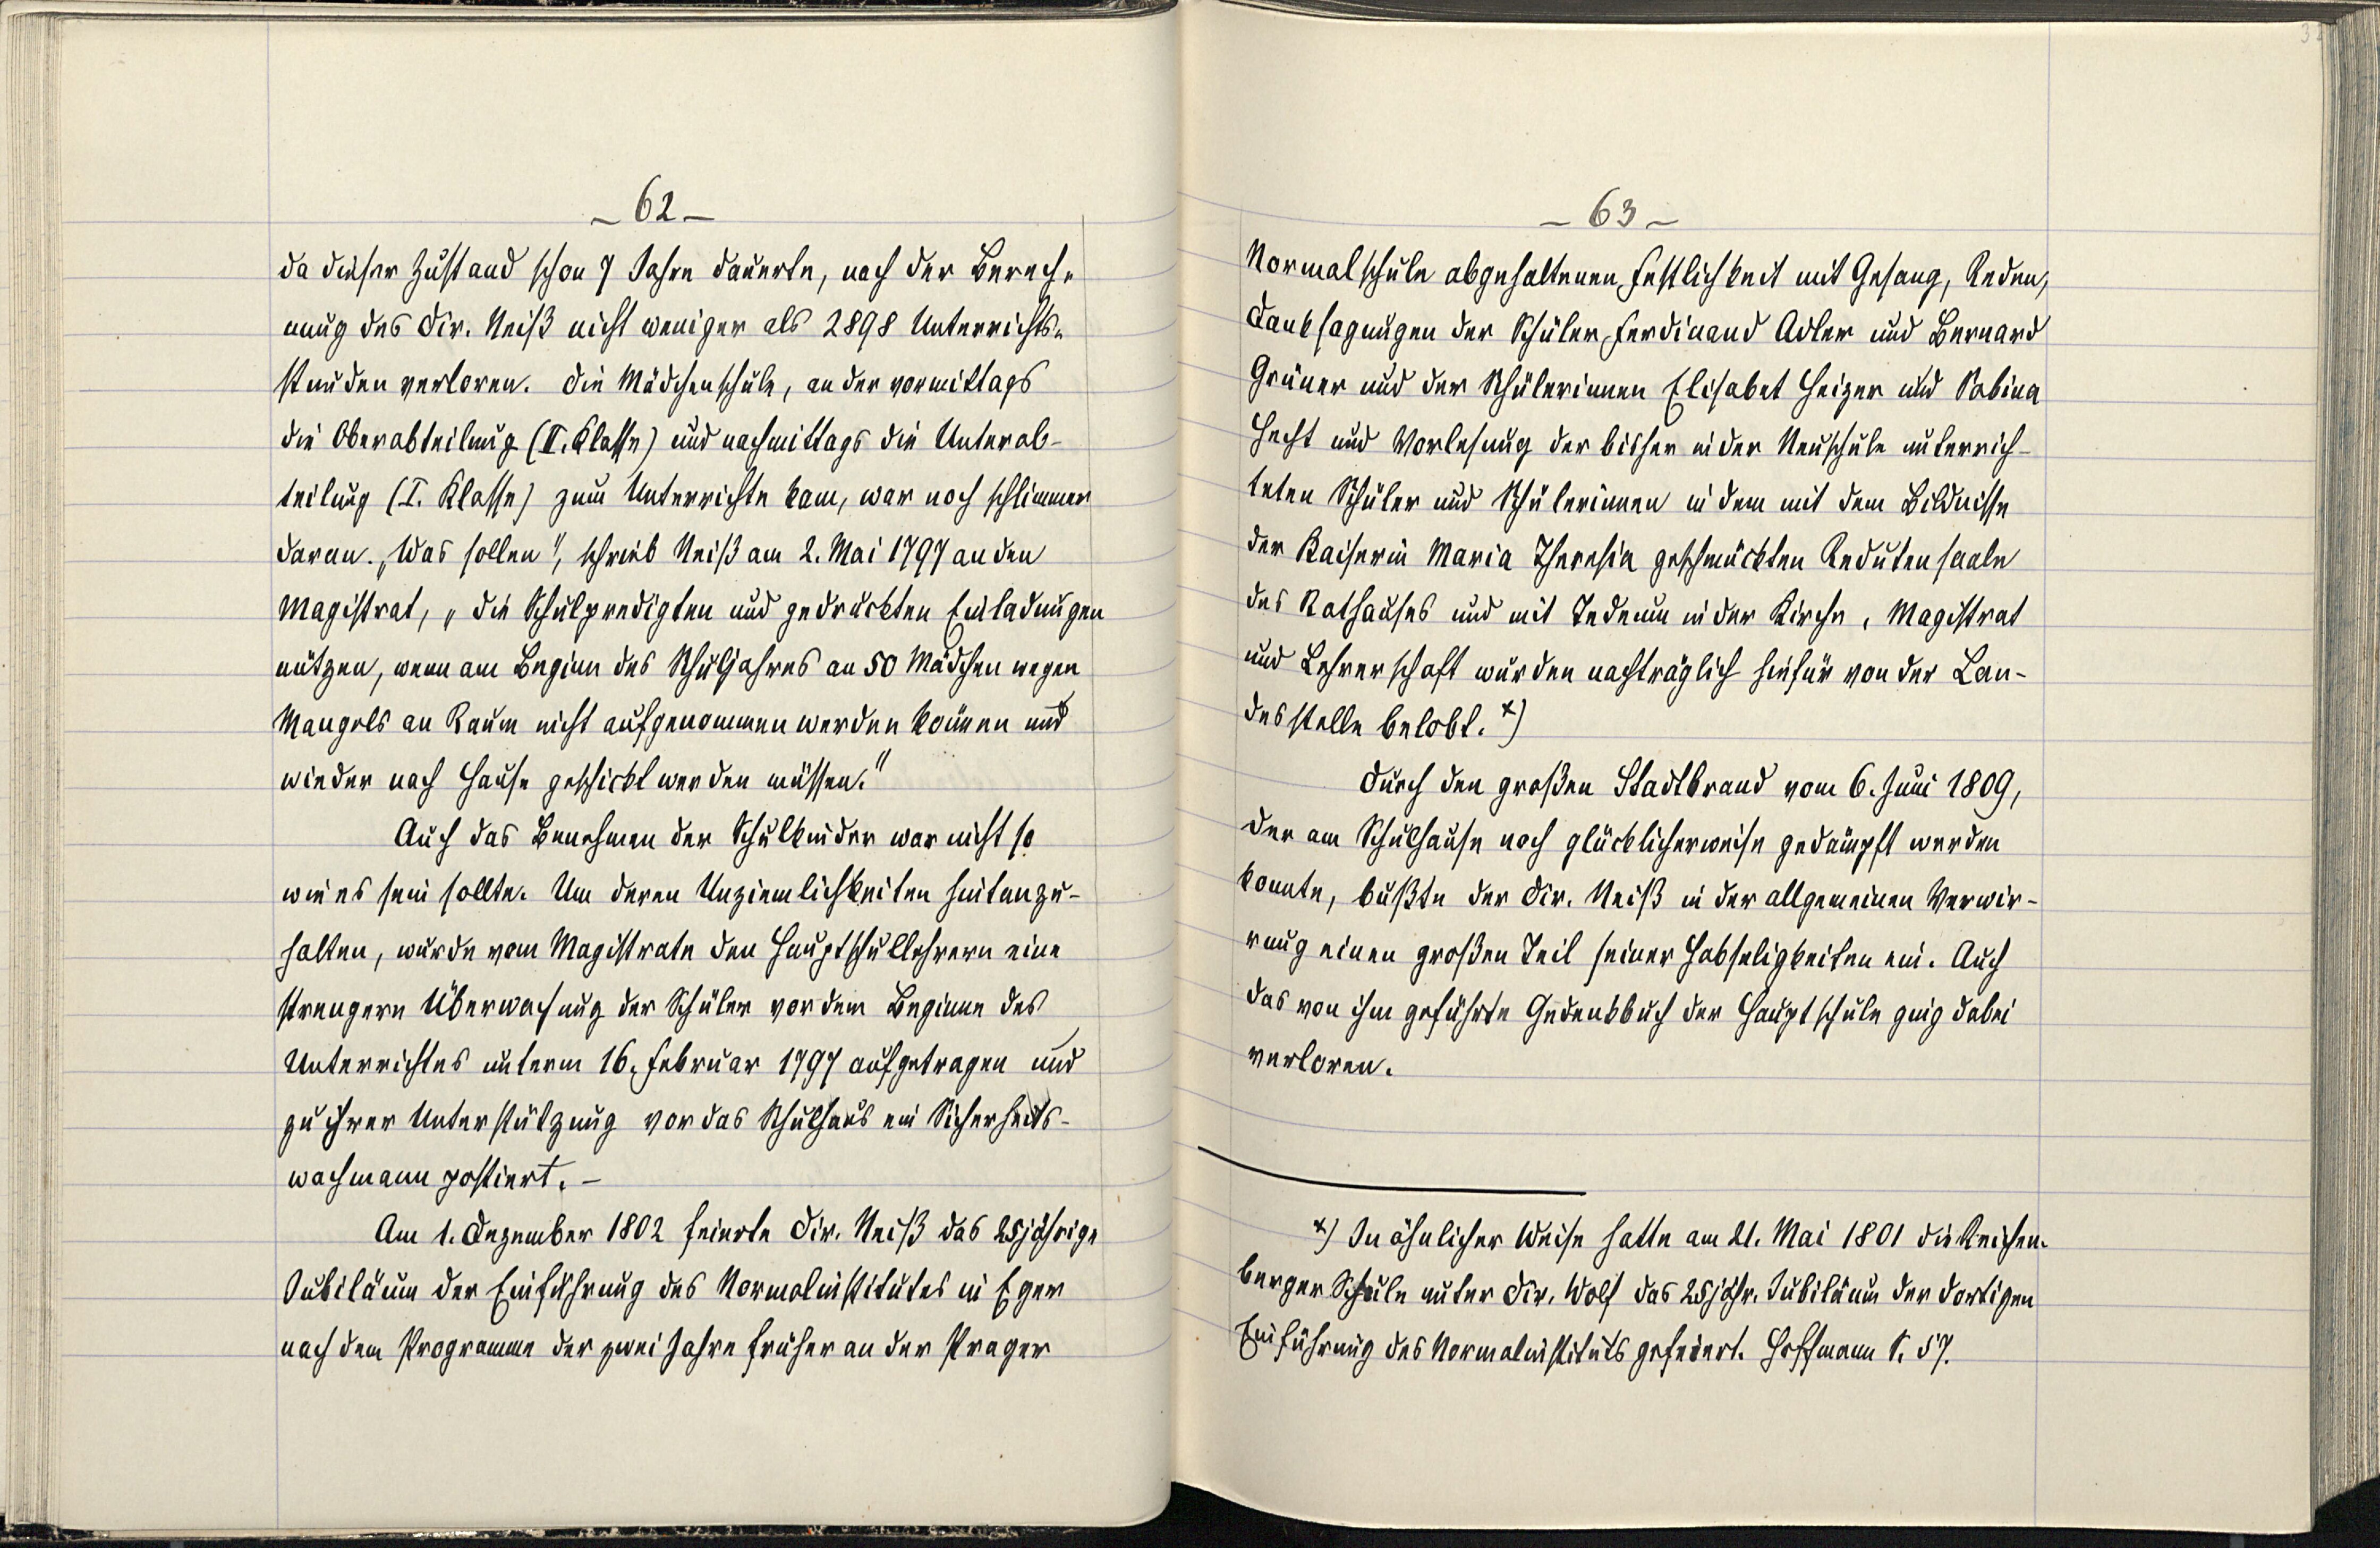 – 62 –
da dieser Zustand schon 7 Jahre dauerte, nach der Berech-
nung des Dir. Neiß nicht weniger als 2898 Unterrichts-
stunden verloren. Die Mädchenschule, an der vormittags
die Oberabteilung (II. Klasse) und nachmittags die Unterab-
teilung (I. Klasse) zum Unterrichte kam, war noch schlimmer
daran. „Was sollen", schrieb Neiß am 2. Mai 1797 an den
Magistrat, „die Schulpredigten und gedruckten Einladungen
nützen, wenn am Beginn des Schuljahres an 50 Mädchen wegen
Mangels an Raum nicht aufgenommen werden können und
wieder nach Hause geschickt werden müssen."
Auch das Benehmen der Schulkinder war nicht so
wie es sein sollte. Um deren Unziemlichkeiten hintanzu-
halten, wurde vom Magistrate den Hauptschullehrern eine
strengere Überwachung der Schüler vor dem Beginne des
Unterrichtes unterm 16. Februar 1797 aufgetragen und
zu ihrer Unterstützung vor das Schulhaus ein Sicherheits-
wachmann postiert. –
Am 1. Dezember 1802 feierte Dir. Neiß das 25jährige
Jubiläum der Einführung des Normalinstitutes in Eger
nach dem Programme der zwei Jahre früher an der Prager
– 63 –
Normalschule abgehaltenen Festlichkeit mit Gesang, Reden,
Danksagungen der Schüler Ferdinand Adler und Bernard
Grüner und der Schülerinnen Elisabet Heizer und Sabina
Hecht und Vorlesung der bisher in der Neuschule unterrich-
teten Schüler und Schülerinnen in dem mit dem Bildnisse
der Kaiserin Maria Theresia geschmückten Redutensaale
des Rathauses und mit Tedeum in der Kirche. Magistrat
und Lehrerschaft wurden nachträglich hiefür von der Lan-
desstelle belobt. x)
Durch den großen Stadtbrand vom 6. Juni 1809,
der am Schulhause noch glücklicherweise gedämpft werden
konnte, büßte der Dir. Neiß in der allgemeinen Verwir-
rung einen großen Teil seiner Habseligkeiten ein. Auch
das von ihm geführte Gedenkbuch der Hauptschule ging dabei
verloren.
x) In ähnlicher Weise hatte am 21. Mai 1801 die Reichen-
berger Schule unter Dir. Wolf das 25jähr. Jubiläum der dortigen
Einführung des Normalinstituts gefeiert. Hoffmann S. 57.